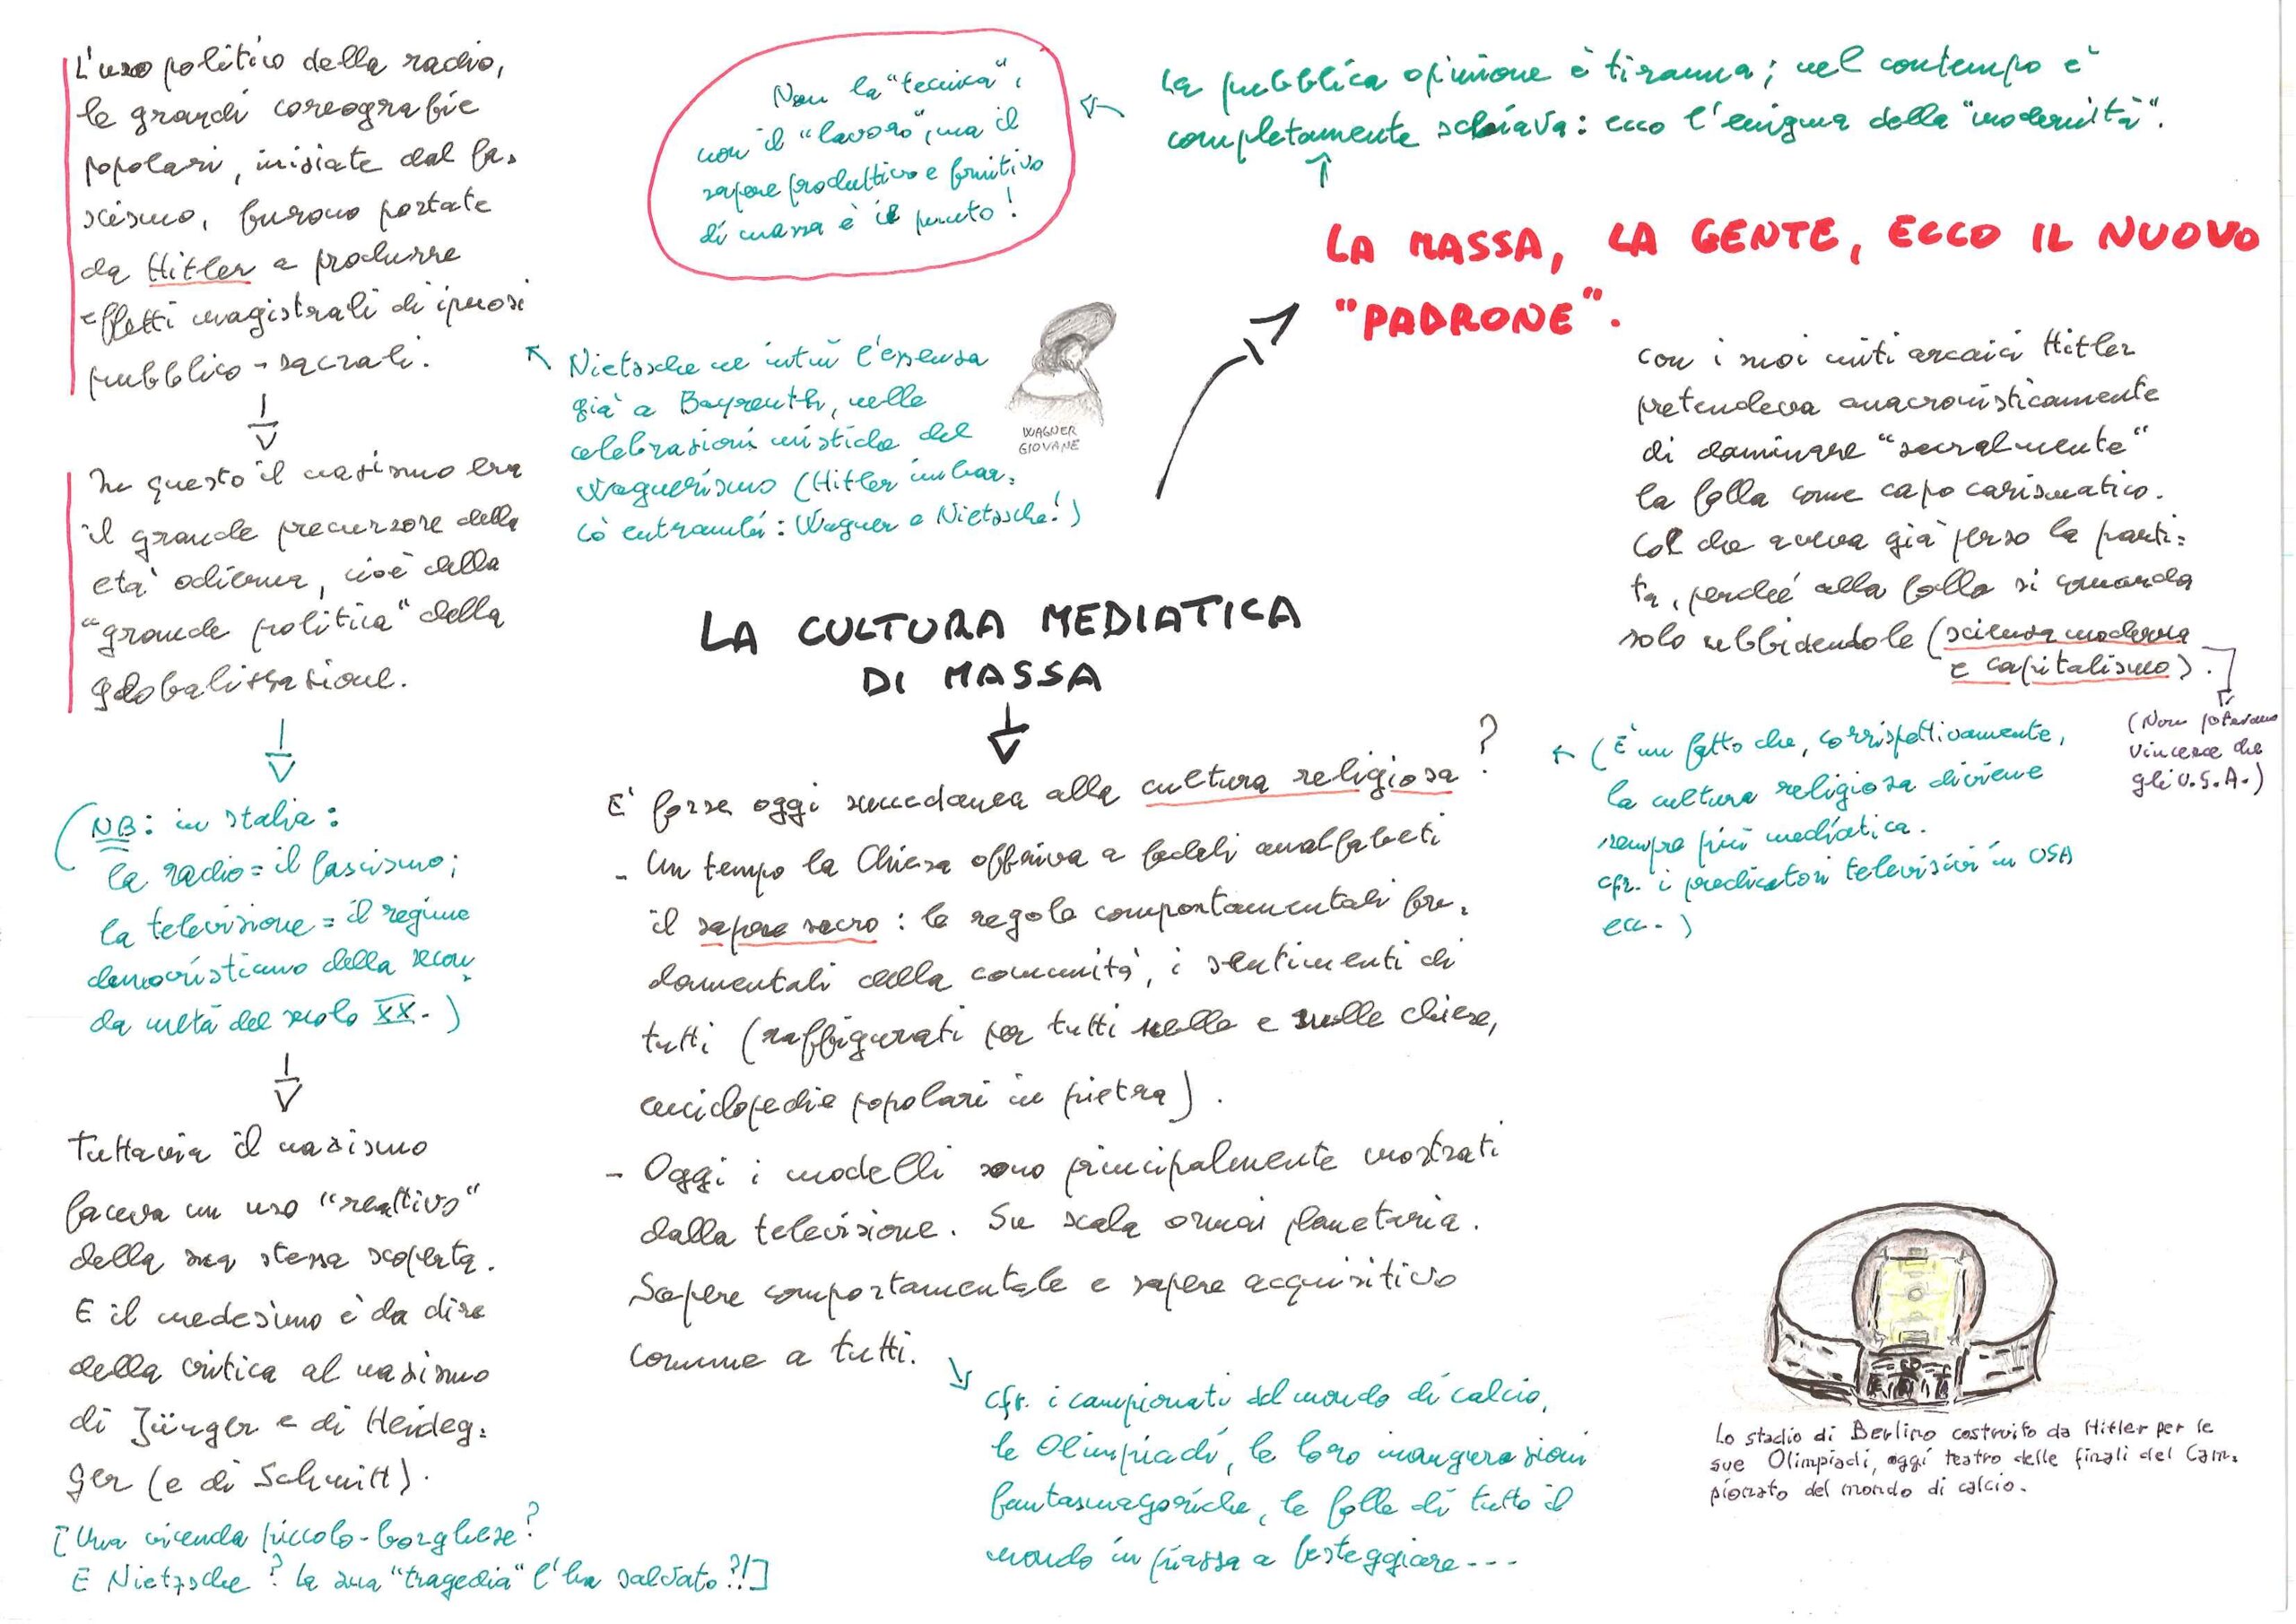 L'uso politico della radio,
le grandi coreografie
popolari, iniziate dal fa-
scismo, furono portate
da Hitler a produrre
effetti magistrali di ipnosi
pubblico-sacrali.
In questo il nazismo era
il grande precursore della
età odierna, cioè della
"grande politica" della
globalizzazione.
(NB: in Italia:
la radio = il fascismo;
la televisione = il regime
democristiano della secon-
da metà del secolo XX.)
Tuttavia il nazismo
faceva un uso "reattivo"
della sua stessa scoperta.
E il medesimo è da dire
della critica al nazismo
di Jünger e di Heideg-
ger (e di Schmitt).
[Una vicenda piccolo-borghese?
E Nietzsche? La sua "tragedia" l'ha salvato?!]
Non la "tecnica",
non il "lavoro", ma il
sapere produttivo e fruitivo
di massa è il punto!
Nietzsche ne intuì l'essenza
già a Bayreuth, nelle
celebrazioni mistiche del
wagnerismo (Hitler imbar-
cò entrambi: Wagner e Nietzsche!)
WAGNER
GIOVANE
La pubblica opinione è tiranna; nel contempo è
completamente schiava: ecco l'enigma della "modernità".
LA MASSA, LA GENTE, ECCO IL NUOVO
"PADRONE".
Con i suoi miti arcaici Hitler
pretendeva anacronisticamente
di dominare "sacralmente"
la folla come capo carismatico.
Col che aveva già perso la parti-
ta, perché alla folla si comanda
solo ubbidendole (scienza moderna
e capitalismo).
(Non potevano
vincere che
gli U.S.A.)
LA CULTURA MEDIATICA
DI MASSA
E' forse oggi succedanea alla cultura religiosa?
- Un tempo la Chiesa offriva a fedeli analfabeti
il sapere sacro: le regole comportamentali fon-
damentali della comunità, i sentimenti di
tutti (raffigurati per tutti nelle e sulle chiese,
enciclopedie popolari in pietra).
- Oggi i modelli sono principalmente mostrati
dalla televisione. Su scala ormai planetaria.
Sapere comportamentale e sapere acquisitivo
comune a tutti.
(È un fatto che, corrispettivamente,
la cultura religiosa diviene
sempre più mediatica.
cfr. i predicatori televisivi in USA
ecc.)
Cfr. i campionati del mondo di calcio,
le Olimpiadi, le loro inaugurazioni
fantasmagoriche, le folle di tutto il
mondo in piazza a festeggiare---
Lo stadio di Berlino costruito da Hitler per le
sue Olimpiadi, oggi teatro delle finali del Cam-
pionato del mondo di calcio.